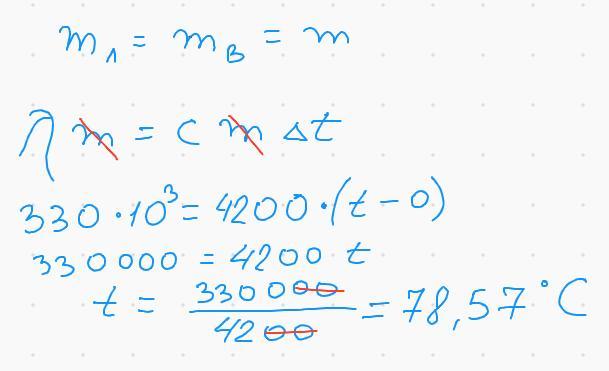 m_Л = m_В = m
λ m = c m Δt
330 · 10³ = 4200 · (t - 0)
330 000 = 4200 t
t = 330000 / 4200 = 78,57 °C